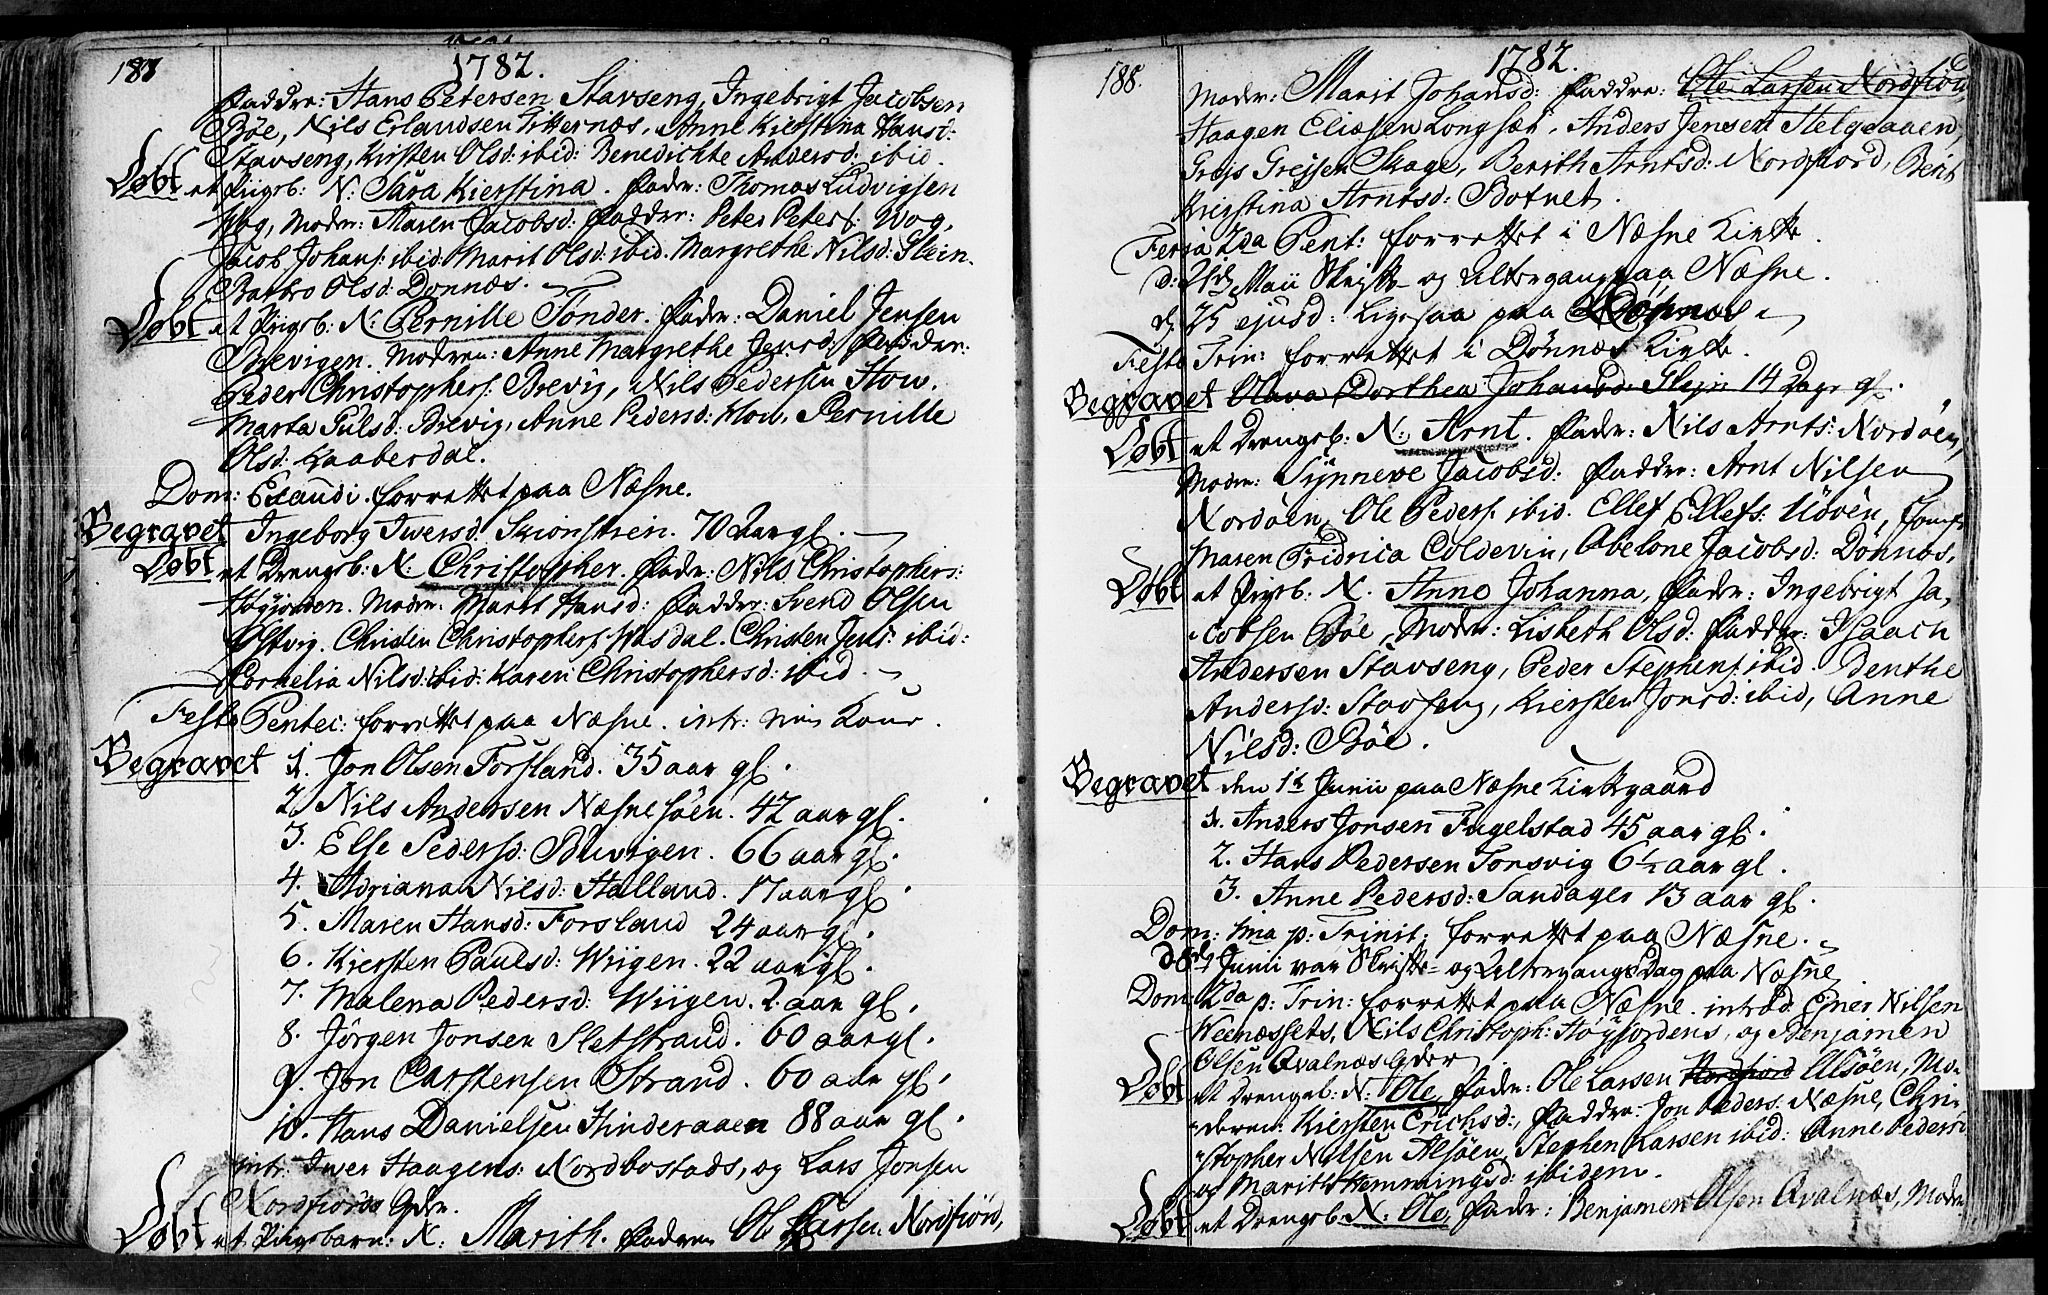 187
1782.
Faddre: Hans Petersen Stavseng, Ingebrigt Jacobsen
Bøe, Nils Erlandsen Titternæs, Anne Kierstina Hansd:
Stavseng, Kirsten Olsd: ibid: Benedichte Andersd: ibid.
Døbt et Piigeb: N: Sara Kierstina. Fader: Thomas Ludvigsen
Wog, Moder: Maren Jacobsd: Faddre: Peter Peters: Wog,
Jacob Johans: ibid: Marit Olsd: ibid. Margrethe Nilsd: Glein.
Barbro Olsd: Dønnæs.
Døbt et Pigeb: N: Pernille Tønder. Fader: Daniel Jensen
Brevigen. Moderen: Anne Margrethe Jensd: Fadder:
Peder Christophers: Brevig, Nils Pedersen Stow.
Marta Pulsd: Brevig, Anne Pedersd: Hou, Pernille
Olsd: Kaaberdal.
Dom: Exaudi. forrettet paa Næsne.
Begravet Ingeborg Iwersd: Skionstien. 70 Aar gl.
Døbt et Drengeb: N: Christopher. Fader: Nils Christophers:
Høgjorden. Moder: Marit Hansd: Faddre: Svend Olsen
Ostvig. Christen Christophers: Wasdal. Christen Jens: ibid:
Cornelia Nilsd: ibid: Karen Christophersd: ibid.
Festo Pentec: forrettet paa Næsne. intr: min Kone.
Begravet 1. Jon Olsen Forsland. 35 aar gl.
2. Nils Andersen Næsnesøen. 42 aar gl.
3. Else Pedersd: Buvigen. 66 aar gl.
4. Adriana Nilsd: Halland. 17 aar gl.
5. Maren Hansd: Forsland 24 aar gl.
6. Kiersten Paulsd: Wiigen. 22 aar gl.
7. Malena Pedersd: Wiigen. 2 aar gl.
8. Jørgen Jonsen Sletstrand. 60 aar gl.
9. Jon Carstensen Strand. 60 aar gl.
10. Hans Danielsen Hinderaaen 88 aar gl.
intr: Iwer Haagens: Nordbostads, og Lars Jonsen
Nordfiords Gder.
Døbt et Pigebarn. N: Marith. Fader Ole Larsen Nordfiord,
188.
1782.
Moder: Marit Johansd: Faddre: Ole Larsen Nordfiord,
Haagen Eliæsen Longsæt, Anders Jensen Stelgaaen,
Greis Greisen Skage, Berith Arntsd: Nordfiord, Berit
Kierstina Arntsd: Botnet.
Feria 2da Pent: forrettet i Næsne Kirke.
d: 24de Maii Skrifte- og Altergang paa Næsne.
d: 25 ejusd: Ligesaa paa Dønnæs
Festo Trin: forrettet i Dønnæs Kirke.
Begravet Olava Dorthea Johansd: Glein 14 Dage gl.
Døbt et Drengeb: N: Arnt. Fader: Nils Arnts: Nordøen,
Moder: Synneve Jacobsd: Faddre: Arnt Nilsen
Nordøen, Ole Peders: ibid. Ellef Ellefs: Uøven, Jomfr
Maren Fridrica Coldevin, Abelone Jacobsd: Dønnæs.
Døbt et Pigeb. N. Anne Johanna, Fader: Ingebrigt Ja-
cobsen Bøe, Moder: Lisbeth Olsd: Faddre: Isaach
Andersen Stavseng, Peder Stephens: ibid. Denthe
Andersd: Stavseng, Kiersten Jonsd: ibid, Anne
Nilsd: Bøe.
Begravet den 1t Junii paa Næsne Kirkegaard
1. Anders Jonsen Fugelstad 45 aar gl.
2. Hans Pedersen Torsvig 6½ aar gl.
3. Anne Pedersd: Sandager 13 aar gl.
Dom: 1ma p: Trinit: forrettet paa Næsne.
d 8de Junii var Skrifte- og Altergangsdag paa Næsne
Dom: 2da p: Trin: forrettet paa Næsne. introd. Ejner Nilsen
Weenæssets, Nils Christoph: Høgjordens, og Benjamen
Olsen Qvalnæs Gder
Døbt et Drengeb: N: Ole, Fader: Ole Larsen Nordfiord Alsøen, Mo-
deren: Kiersten Erichsd:, Faddre: Jon Peders: Næsne, Chri-
stopher Nilsen Alsøen, Stephen Larsen ibid: Anne Pedersd
og Marith Hemmingsd: ibidem.
Døbt et Drengeb: N: Ole, Fader: Benjamen Olsen Qvalnæs, Moder